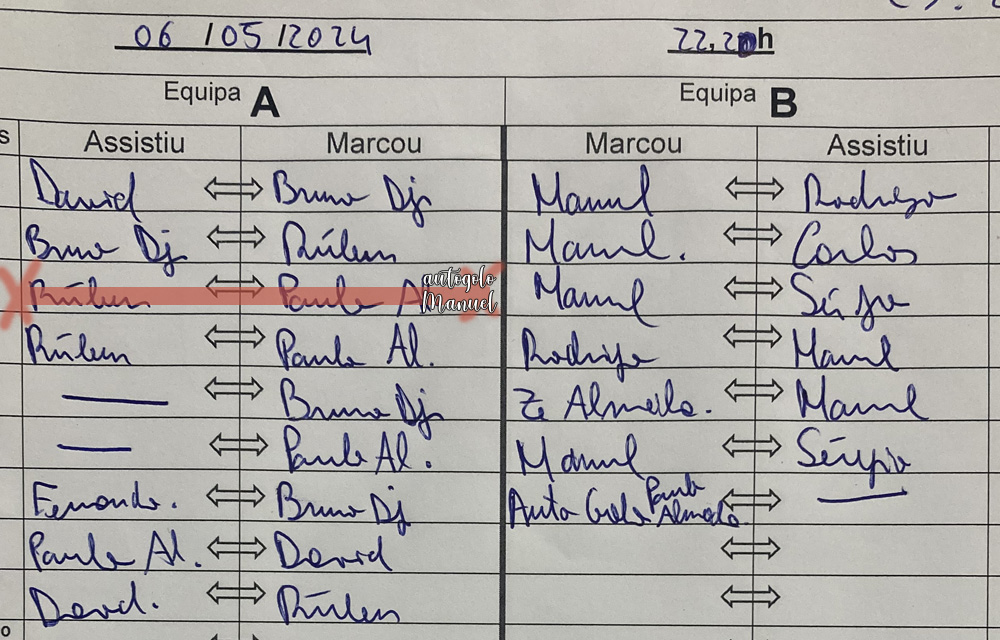 06 / 05 / 2024 22,20h
Equipa A Equipa B
s Assistiu Marcou Marcou Assistiu
David Bruno Dj Manuel Rodrigo
Bruno Dj Rúben Manuel. Carlos
Rúben Paulo Al autógolo Manuel Manuel Sérgio
Rúben Paulo Al. Rodrigo Manuel
Bruno Dj Zé Almeida. Manuel
Paulo Al. Manuel Sérgio
Fernando. Bruno Dj Auto Golo Paulo Almeida
Paulo Al. David
David. Rúben
o